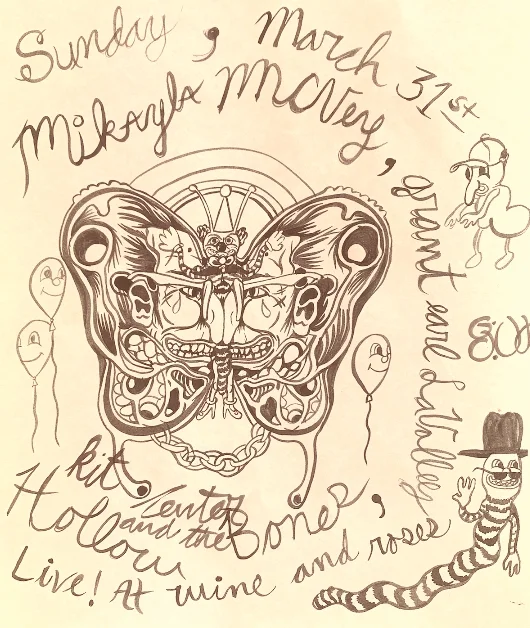 Sunday, March 31st
Mikayla McVey,
grant earl LaValley,
8:00
kit Center
and the
Hollow Bones,
Live! At wine and roses